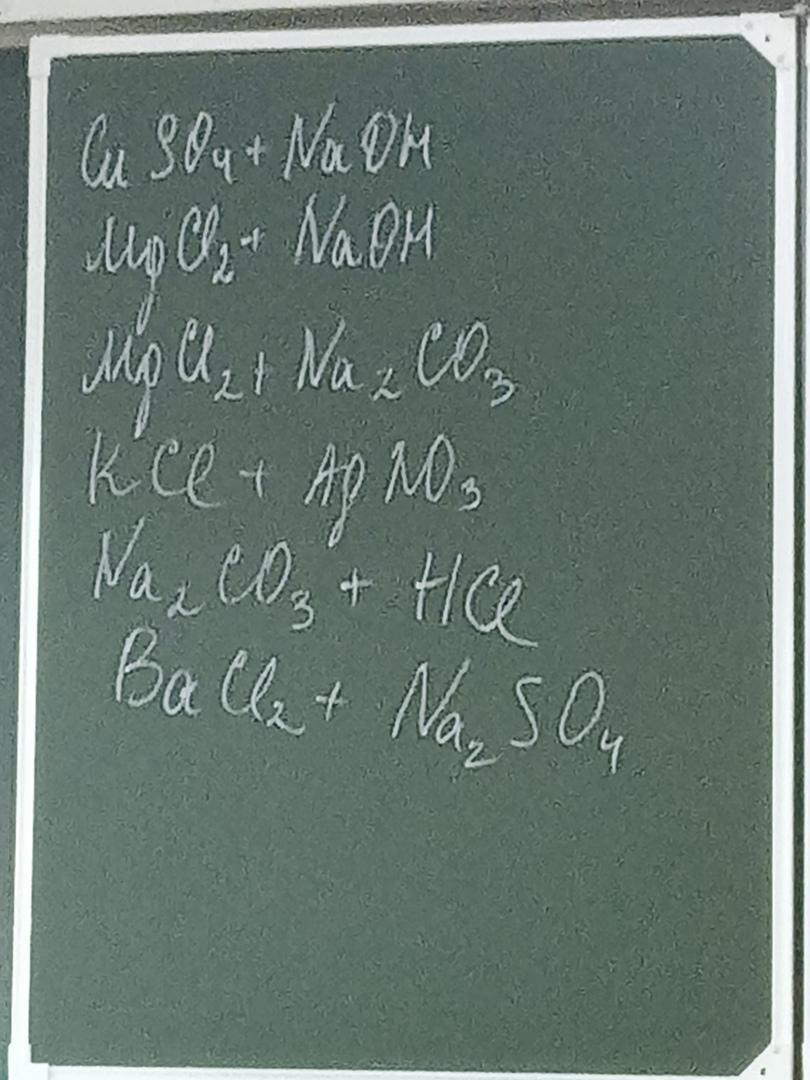 CuSO₄ + NaOH
MgCl₂ + NaOH
MgCl₂ + Na₂CO₃
KCl + AgNO₃
Na₂CO₃ + HCl
BaCl₂ + Na₂SO₄